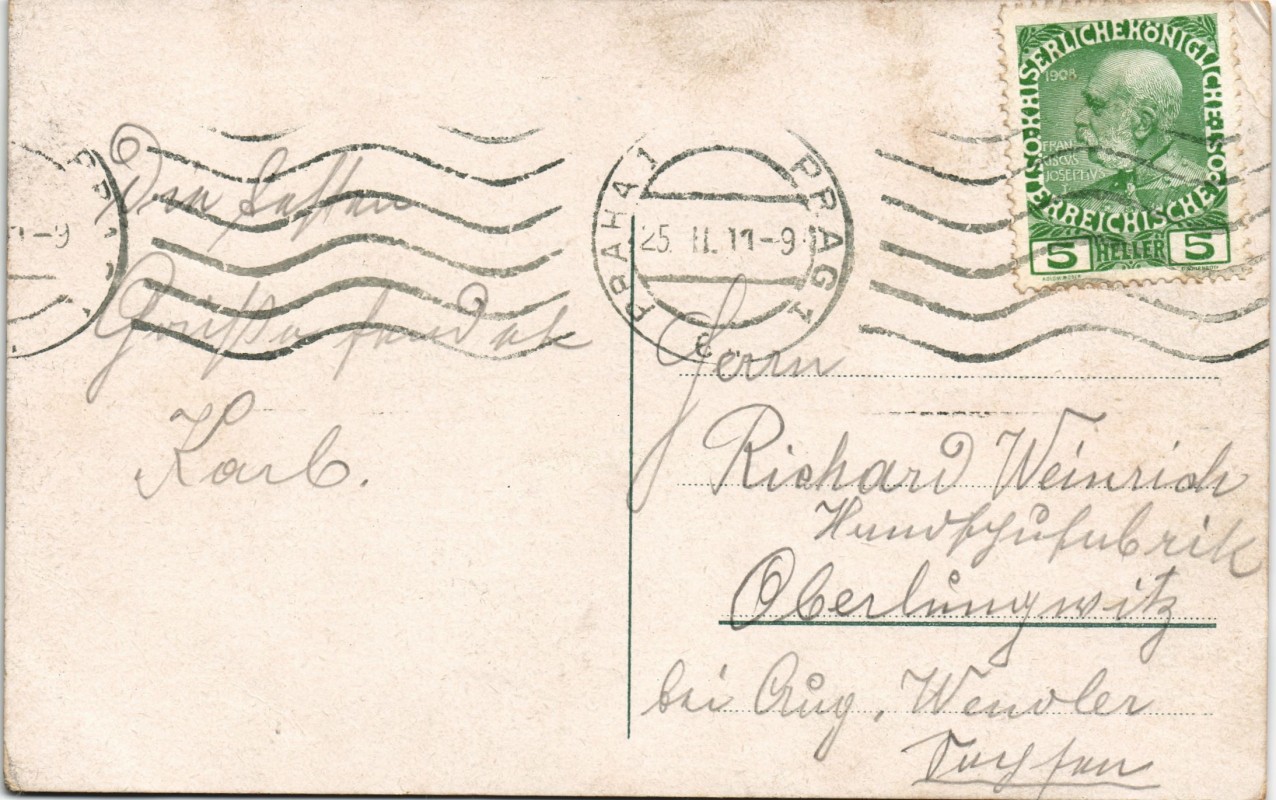 Die besten
Grüße sendet
Karl.
1-9
PRAHA 1 PRAG 1
25. II. 11-9
KAISERLICHE KÖNIGLICHE ÖSTERREICHISCHE POST
1908
FRAN
CISCVS
JOSEPHVS
I
5 HELLER 5
Herrn
Richard Weinrich
Handschufabrik
Oberlungwitz
bei Aug. Wendler
Sachsen